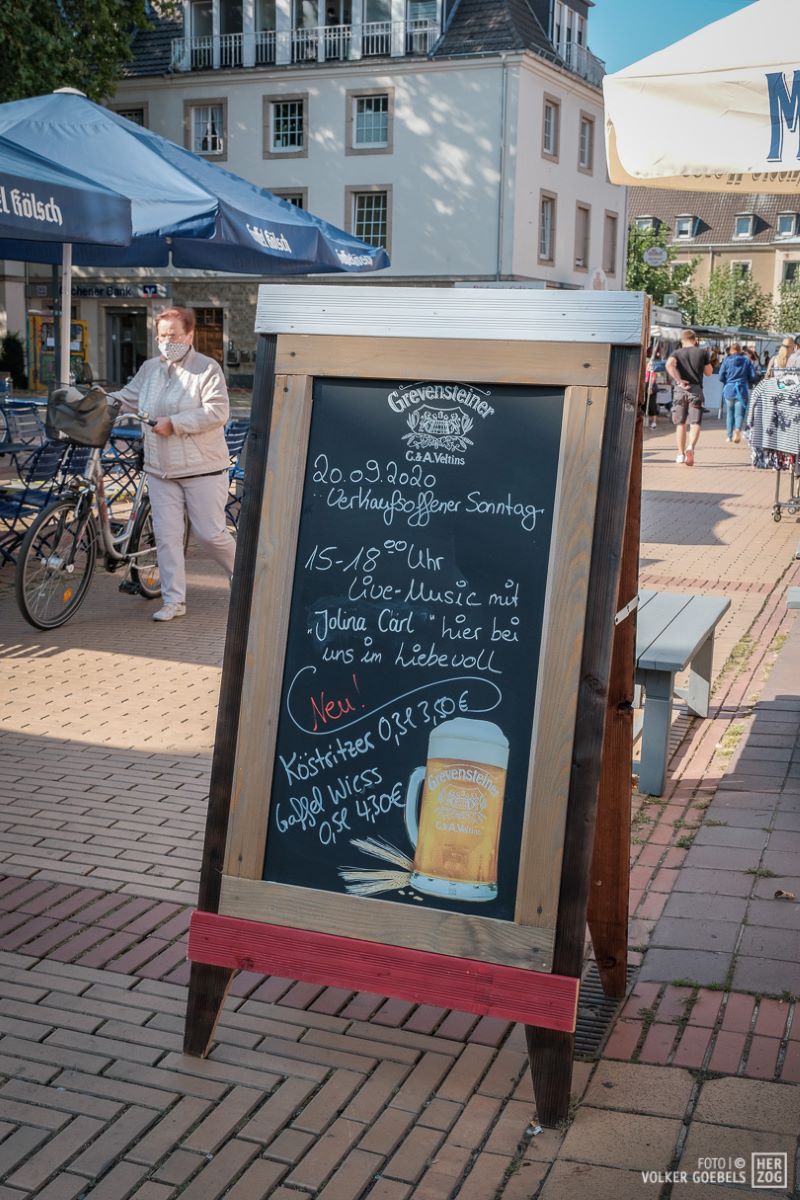 el Kölsch
Gaffel Kölsch
M
chener Bank
Grevensteiner
C.&A.Veltins
20.09.2020
Verkaufsoffener Sonntag
15-18⁰⁰ Uhr
Live-Music mit
„Jolina Carl" hier bei
uns im Liebevoll
Neu!
Köstritzer 0,3l 3,50€
Gaffel Wiess
0,5l 4,30€
Grevensteiner
C.&A.Veltins
FOTO | ©
VOLKER GOEBELS
HER
ZOG